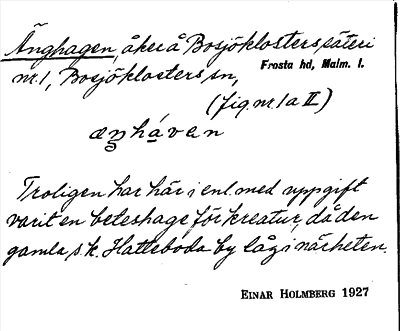 Änghagen, åker å Bosjöklosters säteri
nr. 1, Bosjöklosters sn, Frosta hd, Malm. l.
(fig. nr. 1 a II)
æŋháven
Troligen har här i enl. med uppgift
varit en beteshage för kreatur, då den
gamla, s. k. Hatteboda by låg i närheten.
EINAR HOLMBERG 1927